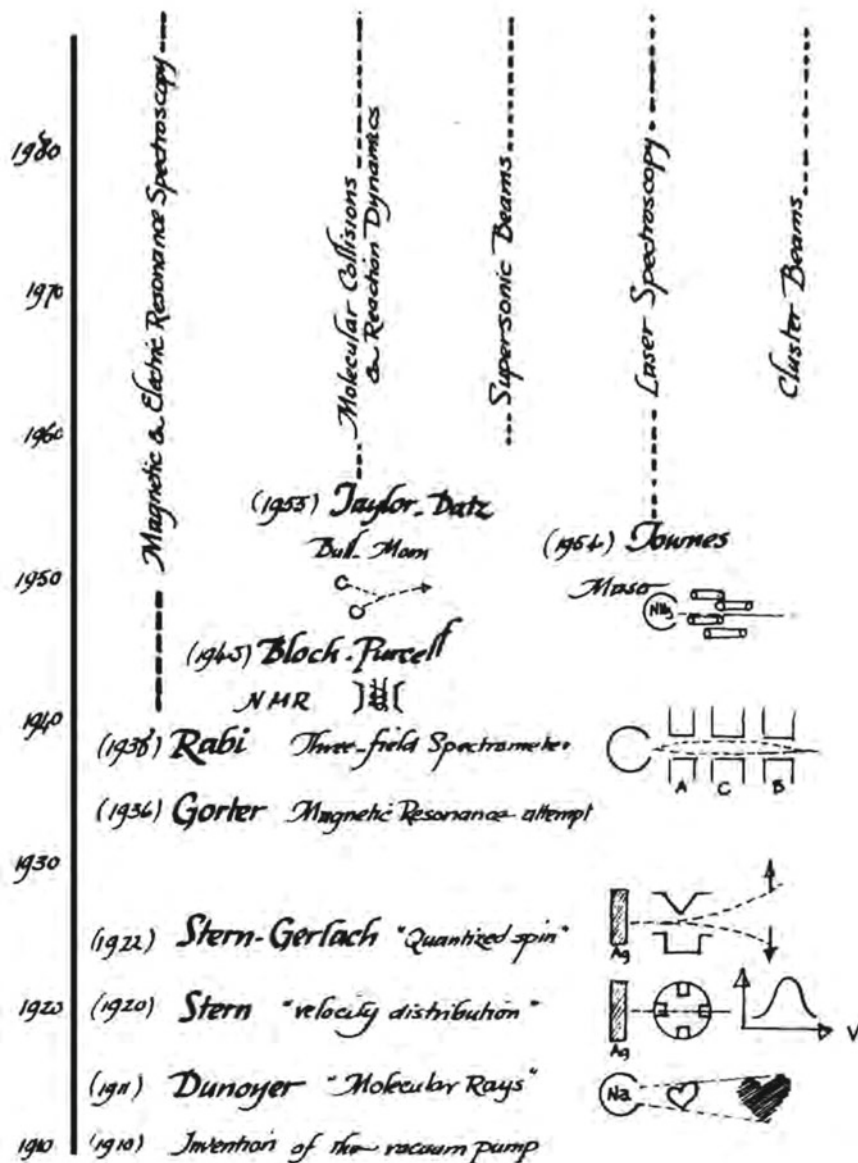 1980
1970
1960
1950
1940
1930
1920
1910
Magnetic & Electric Resonance Spectroscopy
Molecular Collisions
& Reaction Dynamics
Supersonic Beams
Laser Spectroscopy
Cluster Beams
(1955) Taylor-Datz
(1954) Townes
Maser
NH3
(1945) Bloch-Purcell
NMR
(1938) Rabi Three-field Spectrometer
A C B
(1936) Gorter Magnetic Resonance attempt
(1922) Stern-Gerlach "Quantized spin"
Ag
(1920) Stern "velocity distribution"
Ag
V
(1911) Dunoyer "Molecular Rays"
Na
(1910) Invention of the vacuum pump